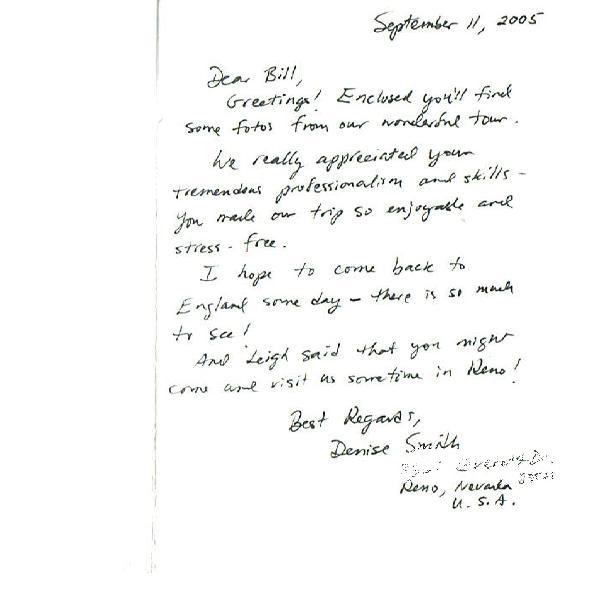 September 11, 2005
Dear Bill,
Greetings! Enclosed you'll find
some fotos from our wonderful tour.
We really appreciated your
tremendous professionalism and skills -
You made our trip so enjoyable and
stress-free.
I hope to come back to
England some day - there is so much
to see!
And Leigh said that you might
come and visit us sometime in Reno!
Best Regards,
Denise Smith
Dr.
Reno, Nevada
U.S.A.